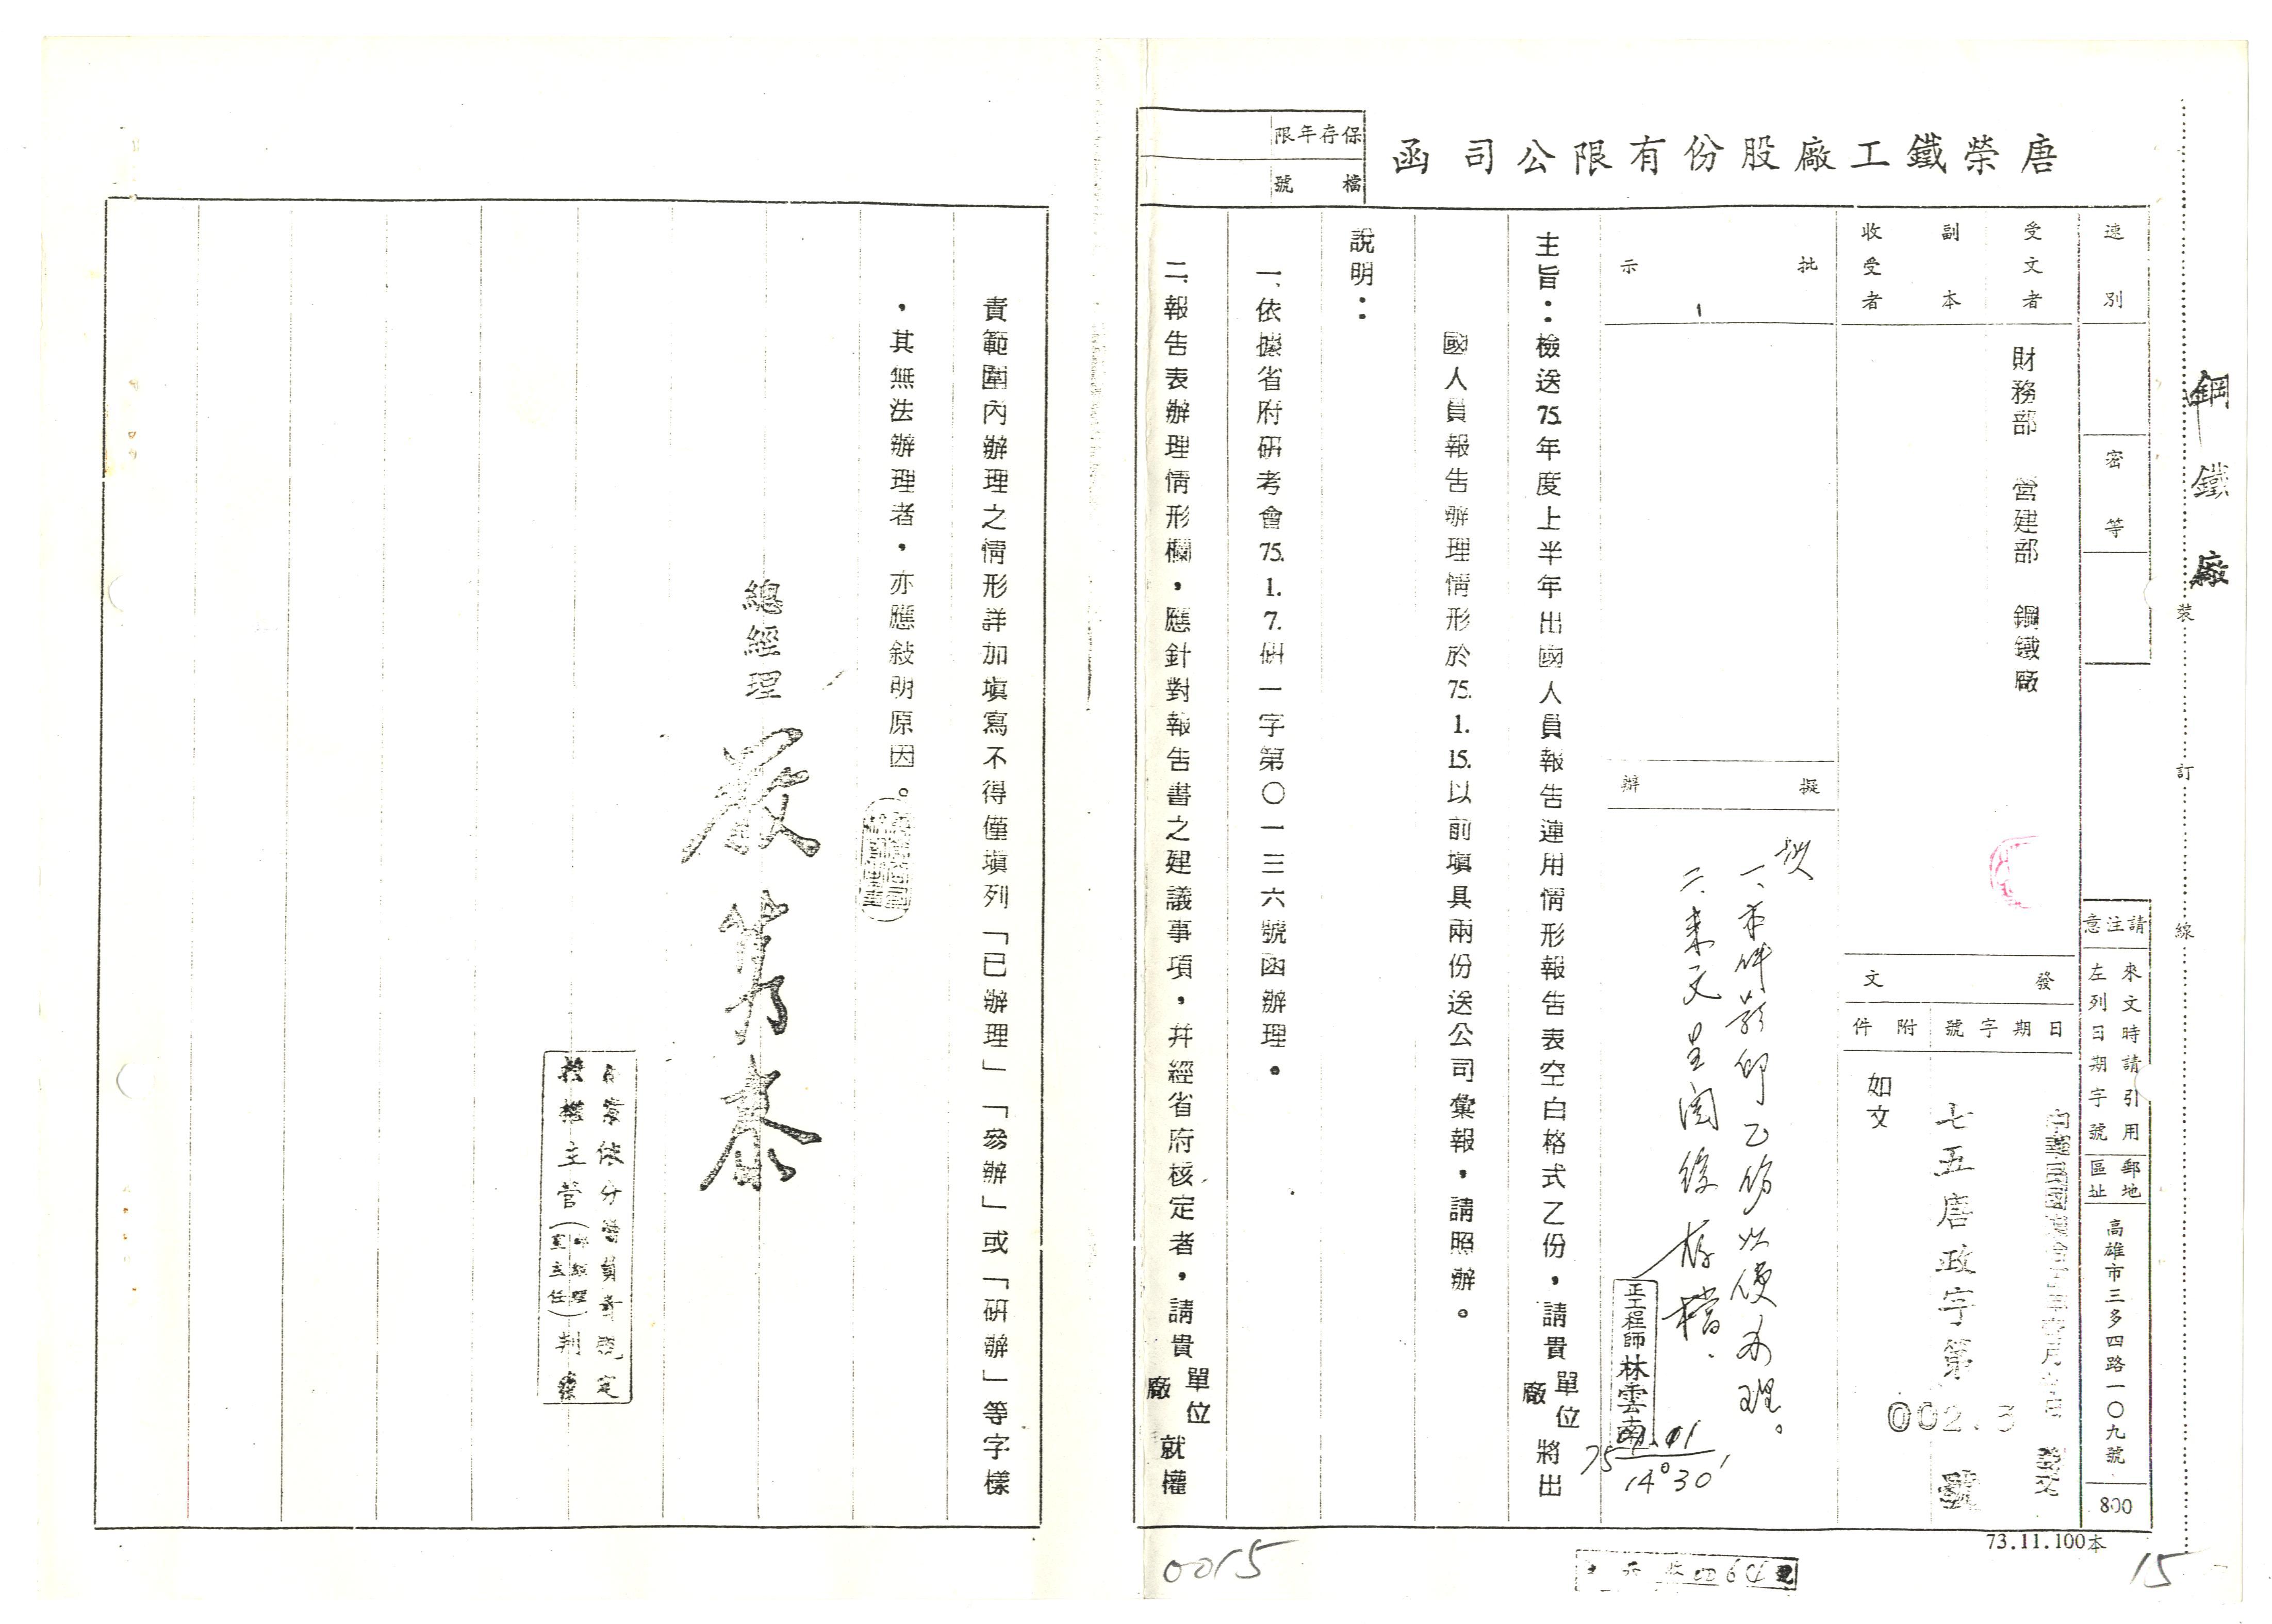 唐榮鐵工廠股份有限公司函
保存年限
檔號
鋼鐵廠
裝訂線
速別
密等
請注意
來文時請引用
左列日期字號
郵地
區址
高雄市三多四路一〇九號
800
受文者
財務部 營建部 鋼鐵廠
副本
收受者
發文
日期字號
附件
七五唐政字第
號
如文
批示
擬辦
擬
一、本件影印乙份以便辦理。
二、來文呈閱後存檔.
正工程師林雲南
14°30'
主旨：檢送75.年度上半年出國人員報告運用情形報告表空白格式乙份，請貴單位廠將出
國人員報告辦理情形於75.1.15.以前填具兩份送公司彙報，請照辦。
說明：
一、依據省府研考會75.1.7.研一字第〇一三六號函辦理。
二、報告表辦理情形欄，應針對報告書之建議事項，幷經省府核定者，請貴單位廠就權
責範圍內辦理之情形詳加填寫不得僅填列「已辦理」「參辦」或「研辦」等字樣
，其無法辦理者，亦應敍明原因。
總經理
本案依分層負責規定
授權主管(副總經理室主任)判發
73.11.100本
0015
15